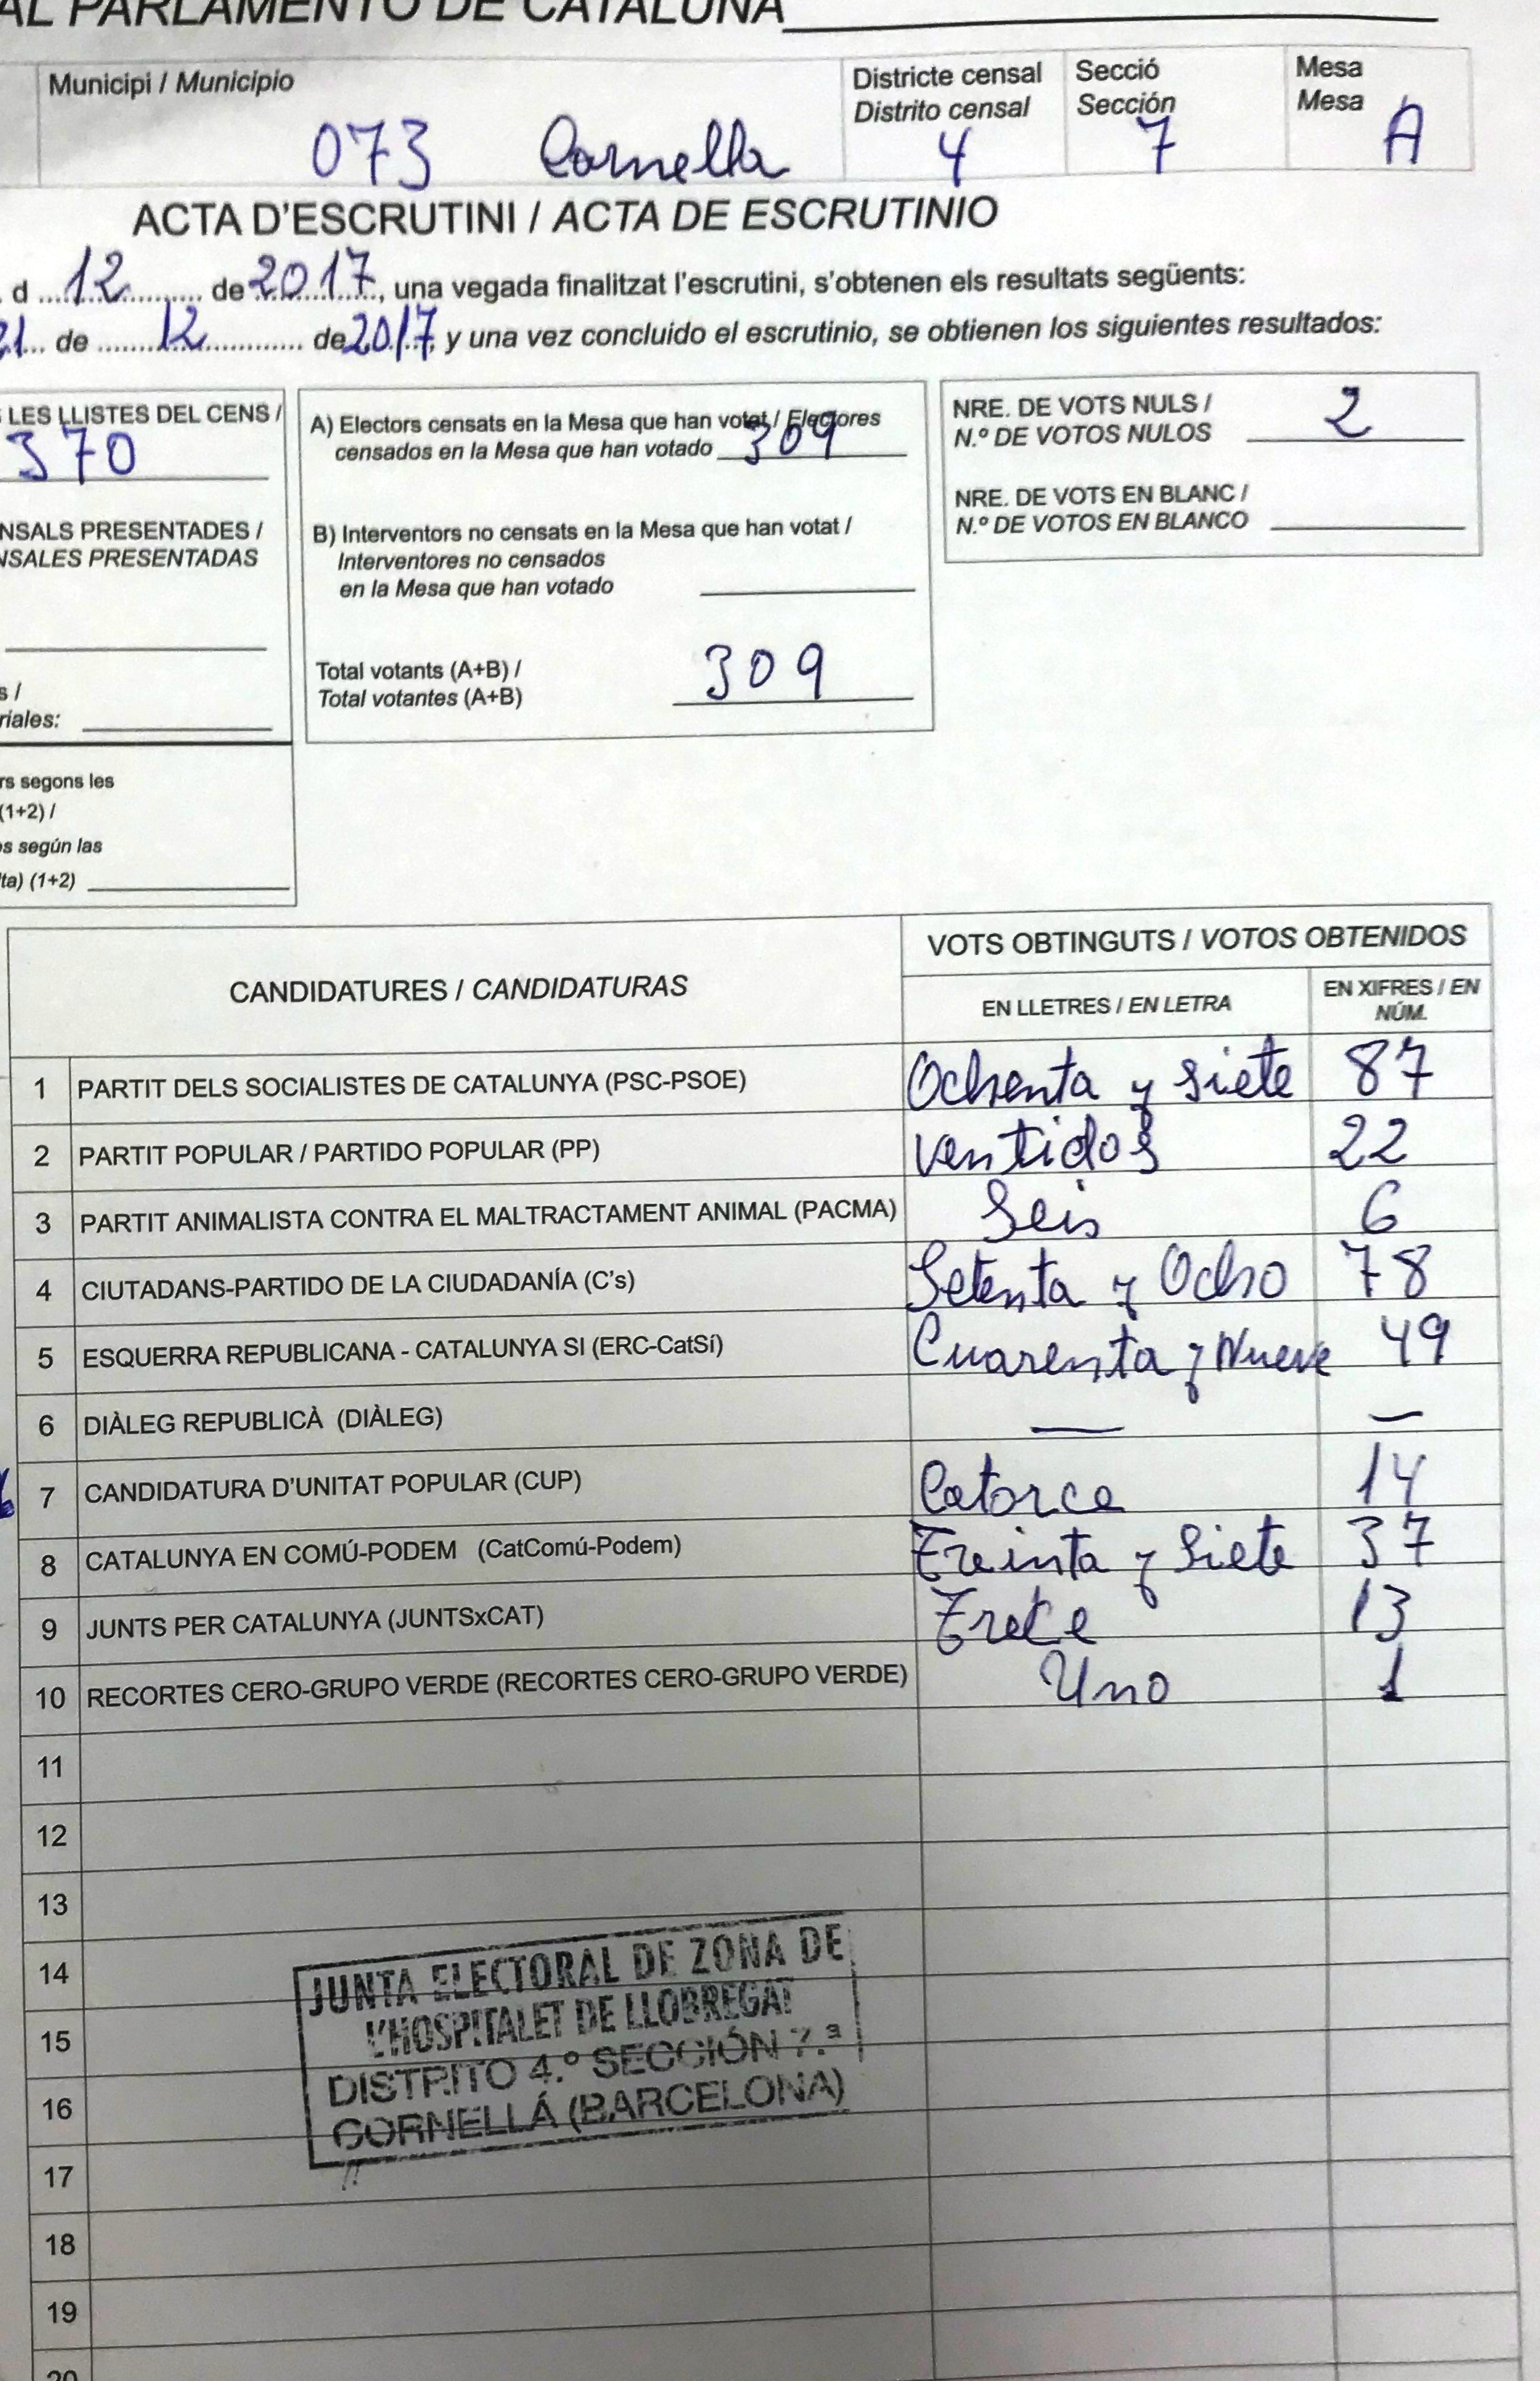 AL PARLAMENTO DE CATALUÑA
Municipi / Municipio
073 Cornella
Districte censal
Distrito censal
4
Secció
Sección
7
Mesa
Mesa
A
ACTA D'ESCRUTINI / ACTA DE ESCRUTINIO
d 12 de 2017, una vegada finalitzat l'escrutini, s'obtenen els resultats següents:
21 de 12 de 2017, y una vez concluido el escrutinio, se obtienen los siguientes resultados:
LES LLISTES DEL CENS /
370
NSALS PRESENTADES /
NSALES PRESENTADAS
s /
riales:
rs segons les
(1+2) /
os según las
lta) (1+2)
A) Electors censats en la Mesa que han votat / Electores
censados en la Mesa que han votado 309
B) Interventors no censats en la Mesa que han votat /
Interventores no censados
en la Mesa que han votado
Total votants (A+B) /
Total votantes (A+B)
309
NRE. DE VOTS NULS /
N.º DE VOTOS NULOS
2
NRE. DE VOTS EN BLANC /
N.º DE VOTOS EN BLANCO
CANDIDATURES / CANDIDATURAS
VOTS OBTINGUTS / VOTOS OBTENIDOS
EN LLETRES / EN LETRA
EN XIFRES / EN
NÚM.
1 PARTIT DELS SOCIALISTES DE CATALUNYA (PSC-PSOE) Ochenta y Siete 87
2 PARTIT POPULAR / PARTIDO POPULAR (PP) ventidos 22
3 PARTIT ANIMALISTA CONTRA EL MALTRACTAMENT ANIMAL (PACMA) Seis 6
4 CIUTADANS-PARTIDO DE LA CIUDADANÍA (C's) Setenta y Ocho 78
5 ESQUERRA REPUBLICANA - CATALUNYA SI (ERC-CatSí) Cuarenta y Nueve 49
6 DIÀLEG REPUBLICÀ (DIÀLEG) — —
7 CANDIDATURA D'UNITAT POPULAR (CUP) Catorce 14
8 CATALUNYA EN COMÚ-PODEM (CatComú-Podem) Treinta y Siete 37
9 JUNTS PER CATALUNYA (JUNTSxCAT) Trece 13
10 RECORTES CERO-GRUPO VERDE (RECORTES CERO-GRUPO VERDE) Uno 1
11
12
13
14
15
16
17
18
19
20
JUNTA ELECTORAL DE ZONA DE
L'HOSPITALET DE LLOBREGAT
DISTRITO 4.º SECCIÓN 7.ª
CORNELLÁ (BARCELONA)